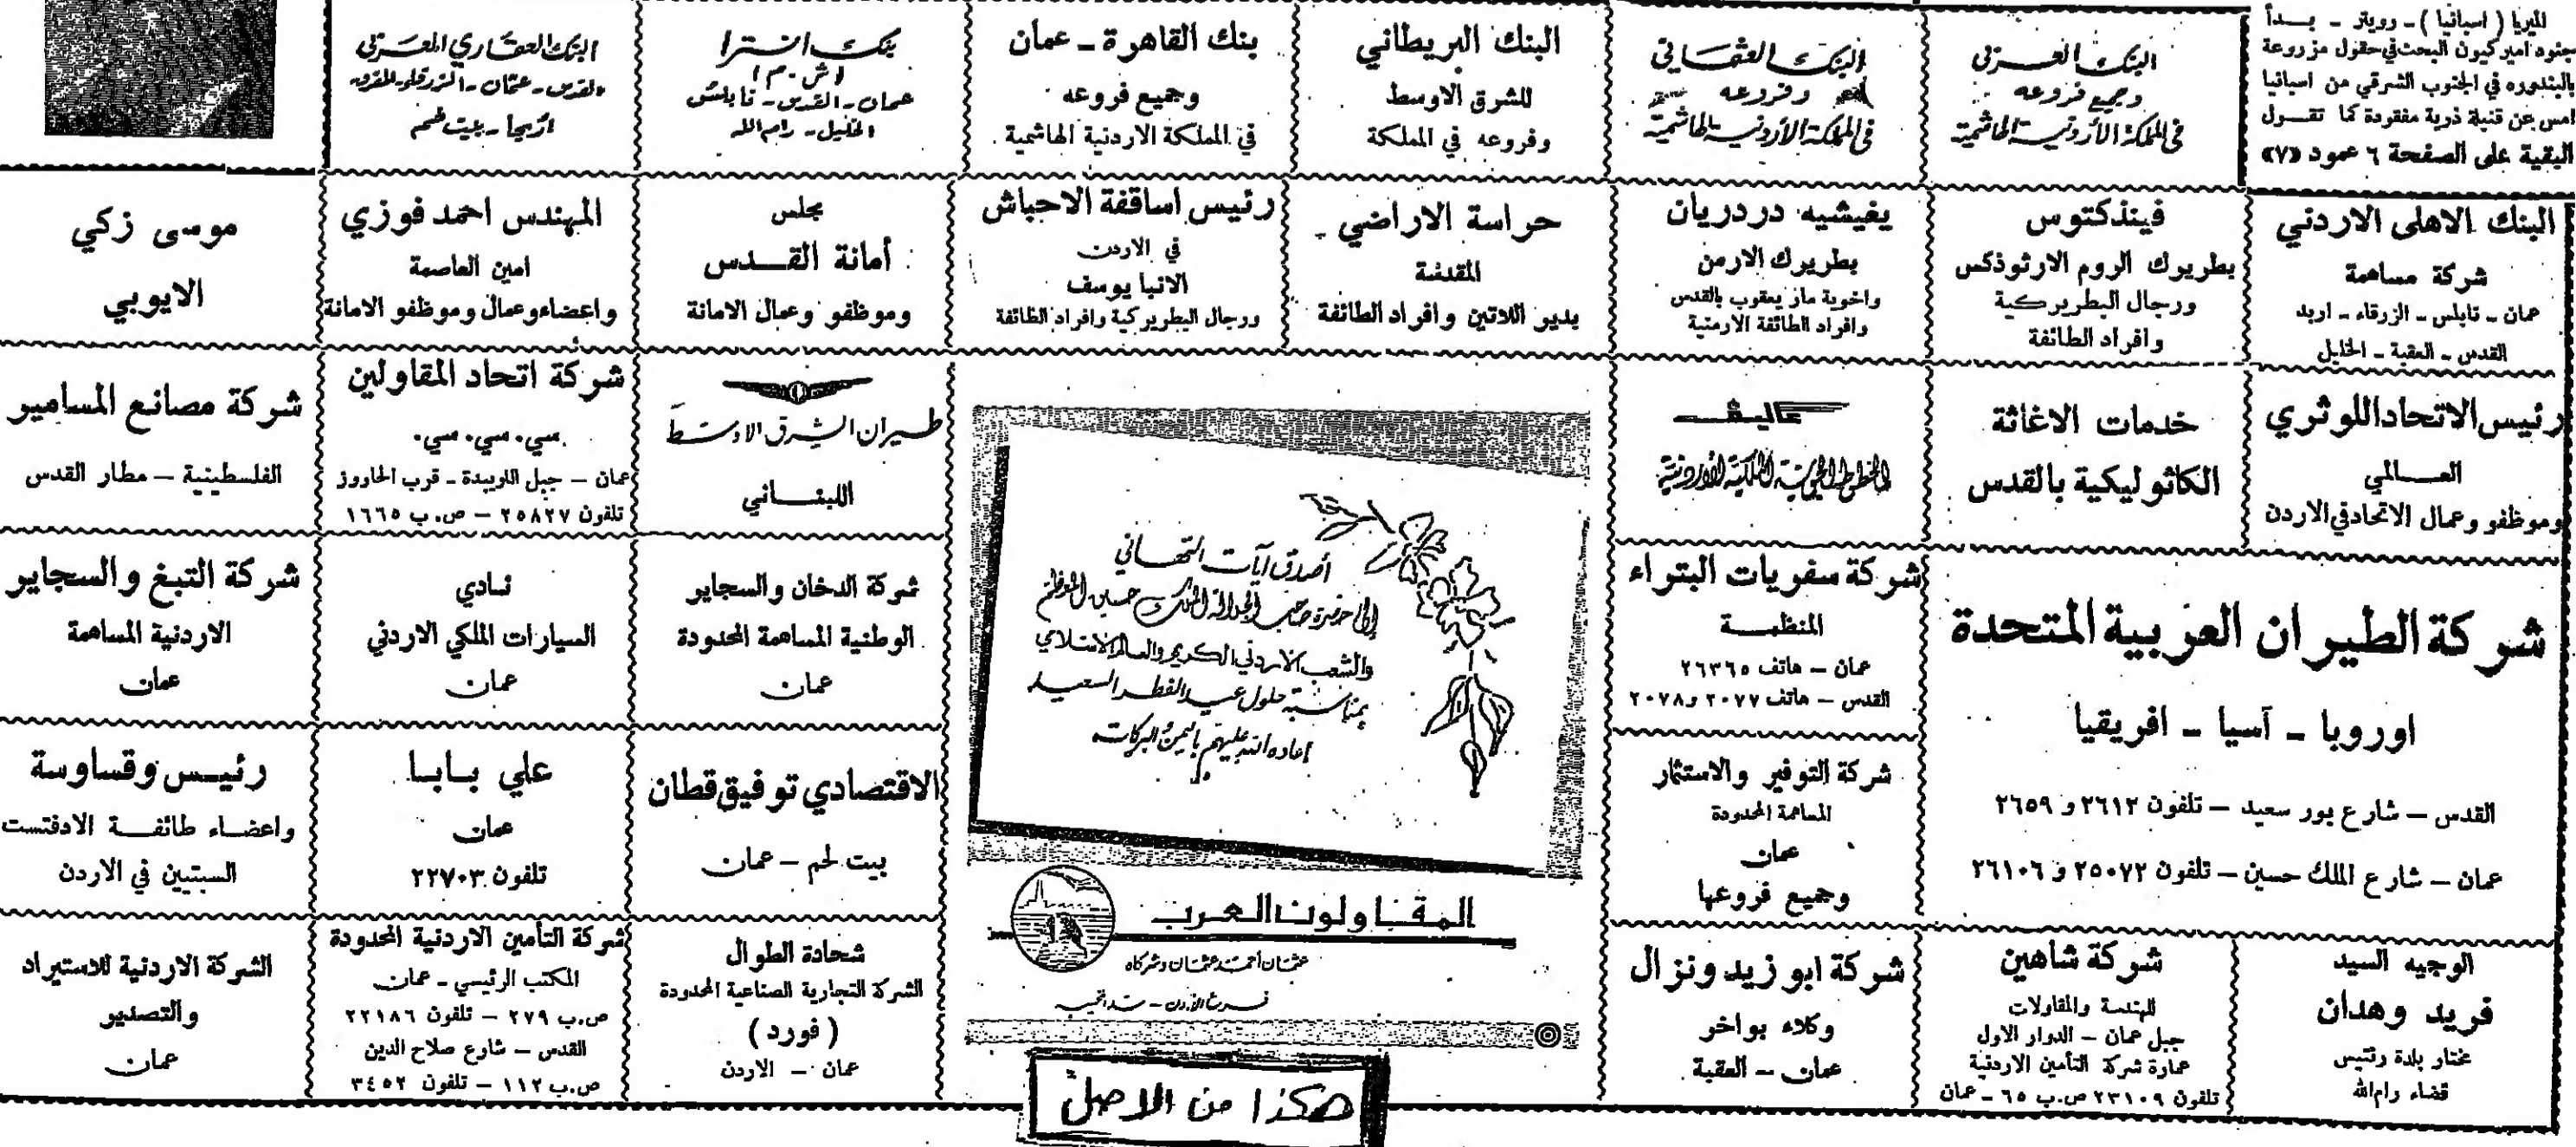 الميريا ( اسبانيا ) - رويتر - بـدأ
جنود اميركيون البحث في حقول مزروعة
بالبندوره في الجنوب الشرقي من اسبانيا
امس عن قنبلة ذرية مفقودة كما تقـول
البقية على الصفحة ٦ عمود «٧»
البنك العربي
وجميع فروعه
في المملكة الأردنية الهاشمية
البنك العثماني
وفروعه
في المملكة الأردنية الهاشمية
البنك البريطاني
للشرق الاوسط
وفروعه في المملكة
بنك القاهرة - عمان
وجميع فروعه
في المملكة الاردنية الهاشمية
بنك انترا
(ش.م)
عمان - القدس - نابلس
الخليل - رام الله
البنك العقاري العربي
القدس - عمان - الزرقاء - المفرق
اريحا - بيت لحم
البنك الاهلى الاردني
شركة مساهمة
عمان - نابلس - الزرقاء - اربد
القدس - العقبة - الخليل
فينذكتوس
بطريرك الروم الارثوذكس
ورجال البطريركية
وافراد الطائفة
يغيشيه دردريان
بطريرك الارمن
واخوية مار يعقوب بالقدس
وافراد الطائفة الارمنية
حراسة الاراضي -
المقدسة
بدير اللاتين وافراد الطائفة
رئيس اساقفة الاحباش
في الاردن
الانبا يوسف
ورجال البطريركية وافراد الطائفة
مجلس
أمانة القـدس
وموظفو وعمال الامانة
المهندس احمد فوزي
امين العاصمة
واعضاء وعمال وموظفو الامانة
موسى زكي
الايوبي
رئيس الاتحاد اللوثري
العـالمي
وموظفو وعمال الاتحاد في الاردن
خدمات الاغاثة
الكاثوليكية بالقدس
عاليه
الخطوط الجوية الملكية الأردنية
طيران الشرق الاوسط
اللبنـاني
شركة اتحاد المقاولين
سي. سي. سي.
عمان - جبل اللويبدة - قرب الحاووز
تلفون ٢٥٨٢٧ - ص.ب ١٦٦٥
شركة مصانع المسامير
الفلسطينية - مطار القدس
شركة الطيران العربية المتحدة
اوروبا - آسيا - افريقيا
القدس - شارع بور سعيد - تلفون ٢٦١٢ و ٢٦٥٩
عمان - شارع الملك حسين - تلفون ٢٥٠٧٢ و ٢٦١٠٦
شركة سفريات البتراء
المنظمـة
عمان - هاتف ٢٦٣٦٥
القدس - هاتف ٢٠٧٧ و ٢٠٧٨
شركة التوفير والاستثمار
المساهمة المحدودة
عمان
وجميع فروعها
أصدق آيات التهاني
إلى حضرة صاحب الجلالة الملك حسين المعظم
والشعب الاردني الكريم والعالم الاسلامي
بمناسبة حلول عيد الفطر السعيد
اعاده الله عليهم باليمن والبركات
المقاولون العرب
عثمان أحمد عثمان وشركاه
شركة الدخان والسجاير
الوطنية المساهمة المحدودة
عمان
نادي
السيارات الملكي الاردني
عمان
شركة التبغ والسجاير
الاردنية المساهمة
عمان
الاقتصادي توفيق قطان
بيت لحم - عمان
علي بـابـا
عمان
تلفون ٢٢٧٠٣
رئيـس وقساوسة
واعضـاء طائفـة الادفنتست
السبتيين في الاردن
الوجيه السيد
فريد وهدان
مختار بلدة رنتيس
قضاء رام الله
شركة شاهين
للهندسة والمقاولات
جبل عمان - الدوار الاول
عمارة شركة التأمين الاردنية
تلفون ٢٣١٠٩ ص.ب ٦٥ - عمان
شركة ابو زيد ونزال
وكلاء بواخر
عمان - العقبة
شحادة الطوال
الشركة التجارية الصناعية المحدودة
( فورد )
عمان - الاردن
شركة التأمين الاردنية المحدودة
المكتب الرئيسي - عمان
ص.ب ٢٧٩ - تلفون ٢٢١٨٦
القدس - شارع صلاح الدين
ص.ب ١١٢ - تلفون ٣٤٥٢
الشركة الاردنية للاستيراد
والتصدير
عمان
هكذا من الاصل